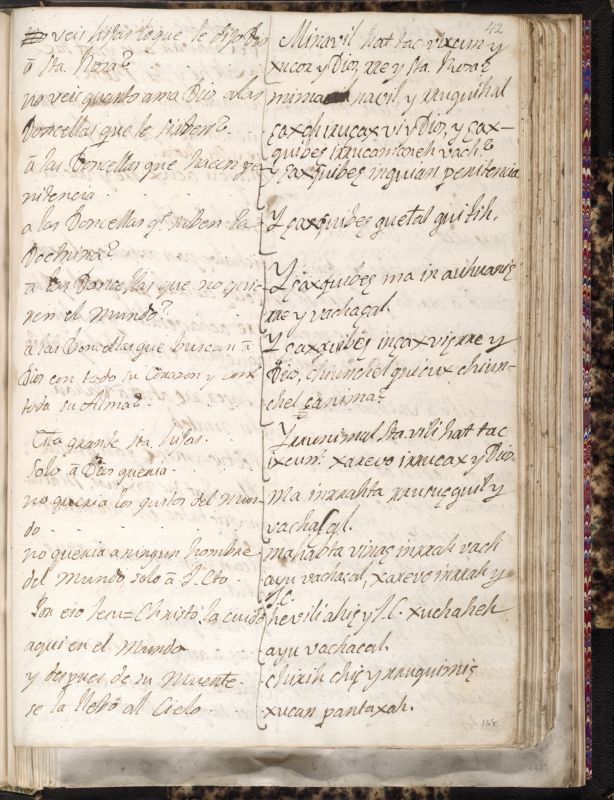 42
no veis hijas lo que le dijo Dios
â Sta. Rosa?
no veis quanto ama Dios a las
Doncellas que le sirven?
â las Doncellas que hacen pe-
nitencia
a las Doncellas qe. saben la
Doctrina?
â las Doncellas que no quie-
ren el mundo?
â las Doncellas que buscan â
Dios con todo su Corazon y con
toda su Alma?
Esta grande Sta. hijas.
Solo â Dios queria.
no queria los gustos del mun-
do.
no queria a ningun hombre
del Mundo, solo â J. Cto.
Por eso Jesu=Christo, la cuidò
aqui en el Mundo
y despues de su Muerte
se la llebò al Cielo
Minavil hat tac vixcun y
xucor y Dios, rre y Sta. Rosa?
mima navil, y rruquihal
çaxch irrucax vi y Dios, y çax-
quibeç irrucantaneh vach?
y çaxquibeç inguian penitencia
Y çaxquibeç quetal quitih.
Y çaxquibeç ma in auhuaniç
rre y vachaçal.
Y çaxquibeç inçax viç rre y
Dios, chiunchel quicux chiun-
chel çanima?
Y nunimul Sta. vili hat tac
ixcun. xarevo irrucax y Dios.
ma inrrahta rrusuçquil y
vachaçal.
mahabta vinaç inrrah vach
ayu vachaçal, xarevo inrrah y
J. C.
he vili ahiç y J. C. xuchaheh
ayu vachacal.
chirih chiç y rruquimiç
xucan pantaxah.
168